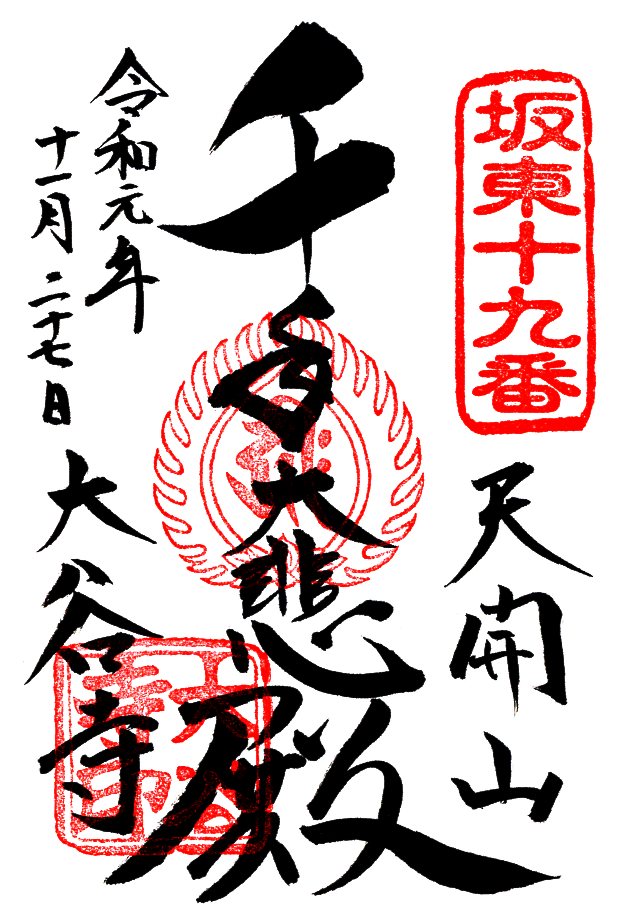 坂東十九番
天開山
千手大悲殿
令和元年
十一月二十七日
大谷寺
大谷寺印